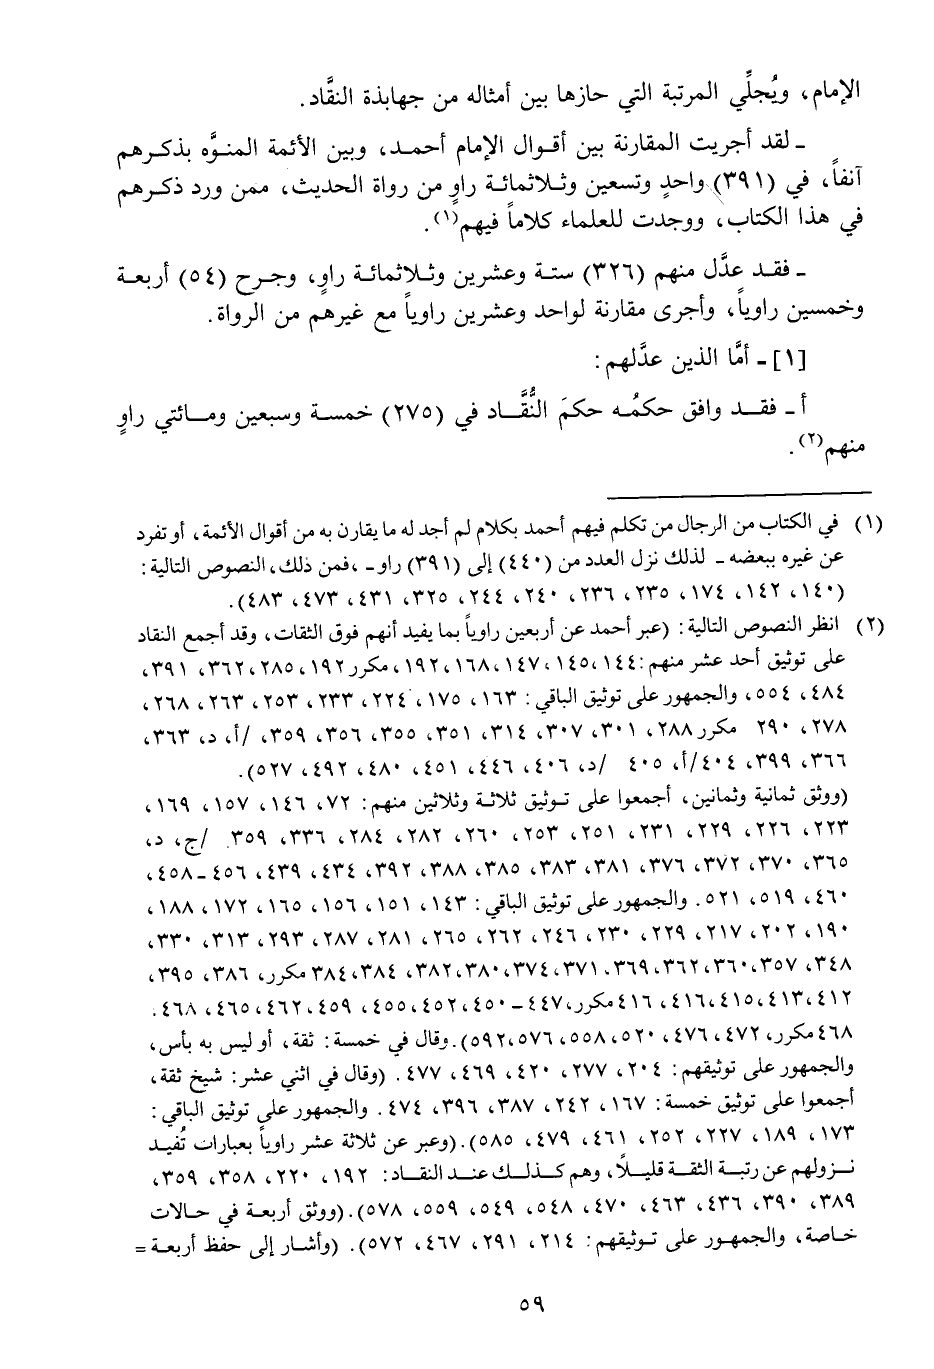 الإمام، ويُجلِّي المرتبة التي حازها بين أمثاله من جهابذة النقَّاد.
ـ لقد أجريت المقارنة بين أقوال الإمام أحمد، وبين الأئمة المنوَّه بذكرهم
آنفاً، في (٣٩١) واحدٍ وتسعين وثلاثمائة راوٍ من رواة الحديث، ممن ورد ذكرهم
في هذا الكتاب، ووجدت للعلماء كلاماً فيهم(١).
ـ فقد عدَّل منهم (٣٢٦) ستة وعشرين وثلاثمائة راوٍ، وجرح (٥٤) أربعة
وخمسين راوياً، وأجرى مقارنة لواحد وعشرين راوياً مع غيرهم من الرواة.
[١] ـ أمَّا الذين عدَّلهم:
أ ـ فقد وافق حكمُه حكمَ النُّقَّاد في (٢٧٥) خمسة وسبعين ومائتي راوٍ
منهم(٢).
(١) في الكتاب من الرجال من تكلم فيهم أحمد بكلام لم أجد له ما يقارن به من أقوال الأئمة، أو تفرد
عن غيره ببعضه ـ لذلك نزل العدد من (٤٤٠) إلى (٣٩١) راو ـ، فمن ذلك، النصوص التالية:
(١٤٠، ١٤٢، ١٧٤، ٢٣٥، ٢٣٦، ٢٤٠، ٢٤٤، ٣٢٥، ٤٣١، ٤٧٣، ٤٨٣).
(٢) انظر النصوص التالية: (عبر أحمد عن أربعين راوياً بما يفيد أنهم فوق الثقات، وقد أجمع النقاد
على توثيق أحد عشر منهم: ١٤٤، ١٤٥، ١٤٧، ١٦٨، ١٩٢، مكرر ١٩٢، ٢٨٥، ٣٦٢، ٣٩١،
٤٨٤، ٥٥٤، والجمهور على توثيق الباقي: ١٦٣، ١٧٥، ٢٢٤، ٢٣٣، ٢٥٣، ٢٦٣، ٢٦٨،
٢٧٨، ٢٩٠ مكرر ٢٨٨، ٣٠١، ٣٠٧، ٣١٤، ٣٥١، ٣٥٥، ٣٥٦، ٣٥٩، /أ، د، ٣٦٣،
٣٦٦، ٣٩٩، ٤٠٤/أ، ٤٠٥ /د، ٤٠٦، ٤٤٦، ٤٥١، ٤٨٠، ٤٩٢، ٥٢٧).
(ووثق ثمانية وثمانين، أجمعوا على توثيق ثلاثة وثلاثين منهم: ٧٢، ١٤٦، ١٥٧، ١٦٩،
٢٢٣، ٢٢٦، ٢٢٩، ٢٣١، ٢٥١، ٢٥٣، ٢٦٠، ٢٨٢، ٢٨٤، ٣٣٦، ٣٥٩ /ج، د،
٣٦٥، ٣٧٠، ٣٧٢، ٣٧٦، ٣٨١، ٣٨٣، ٣٨٥، ٣٨٨، ٣٩٢، ٤٣٤، ٤٣٩، ٤٥٦ ـ ٤٥٨،
٤٦٠، ٥١٩، ٥٢١. والجمهور على توثيق الباقي: ١٤٣، ١٥١، ١٥٦، ١٦٥، ١٧٢، ١٨٨،
١٩٠، ٢٠٢، ٢١٧، ٢٢٩، ٢٣٠، ٢٤٦، ٢٦٢، ٢٦٥، ٢٨١، ٢٨٧، ٢٩٣، ٣١٣، ٣٣٠،
٣٤٨، ٣٥٧، ٣٦٠، ٣٦٢، ٣٦٩، ٣٧١، ٣٧٤، ٣٨٠، ٣٨٢، ٣٨٤، ٣٨٤ مكرر، ٣٨٦، ٣٩٥،
٤١٢، ٤١٣، ٤١٥، ٤١٦، ٤١٦ مكرر، ٤٤٧ ـ ٤٥٠، ٤٥٢، ٤٥٥، ٤٥٩، ٤٦٢، ٤٦٥، ٤٦٨.
٤٦٨ مكرر، ٤٧٢، ٤٧٦، ٥٢٠، ٥٥٨، ٥٧٦، ٥٩٢). وقال في خمسة: ثقة، أو ليس به بأس،
والجمهور على توثيقهم: ٢٠٤، ٢٧٧، ٤٢٠، ٤٦٩، ٤٧٧. (وقال في اثني عشر: شيخ ثقة،
أجمعوا على توثيق خمسة: ١٦٧، ٢٤٢، ٣٨٧، ٣٩٦، ٤٧٤. والجمهور على توثيق الباقي:
١٧٣، ١٨٩، ٢٢٧، ٢٥٢، ٤٦١، ٤٧٩، ٥٨٥). (وعبر عن ثلاثة عشر راوياً بعبارات تُفيد
نزولهم عن رتبة الثقة قليلاً، وهم كذلك عند النقاد: ١٩٢، ٢٢٠، ٣٥٨، ٣٥٩،
٣٨٩، ٣٩٠، ٤٣٦، ٤٦٣، ٤٧٠، ٥٤٨، ٥٤٩، ٥٥٩، ٥٧٨). (ووثق أربعة في حالات
خاصة، والجمهور على توثيقهم: ٢١٤، ٢٩١، ٤٦٧، ٥٧٢). (وأشار إلى حفظ أربعة =
٥٩